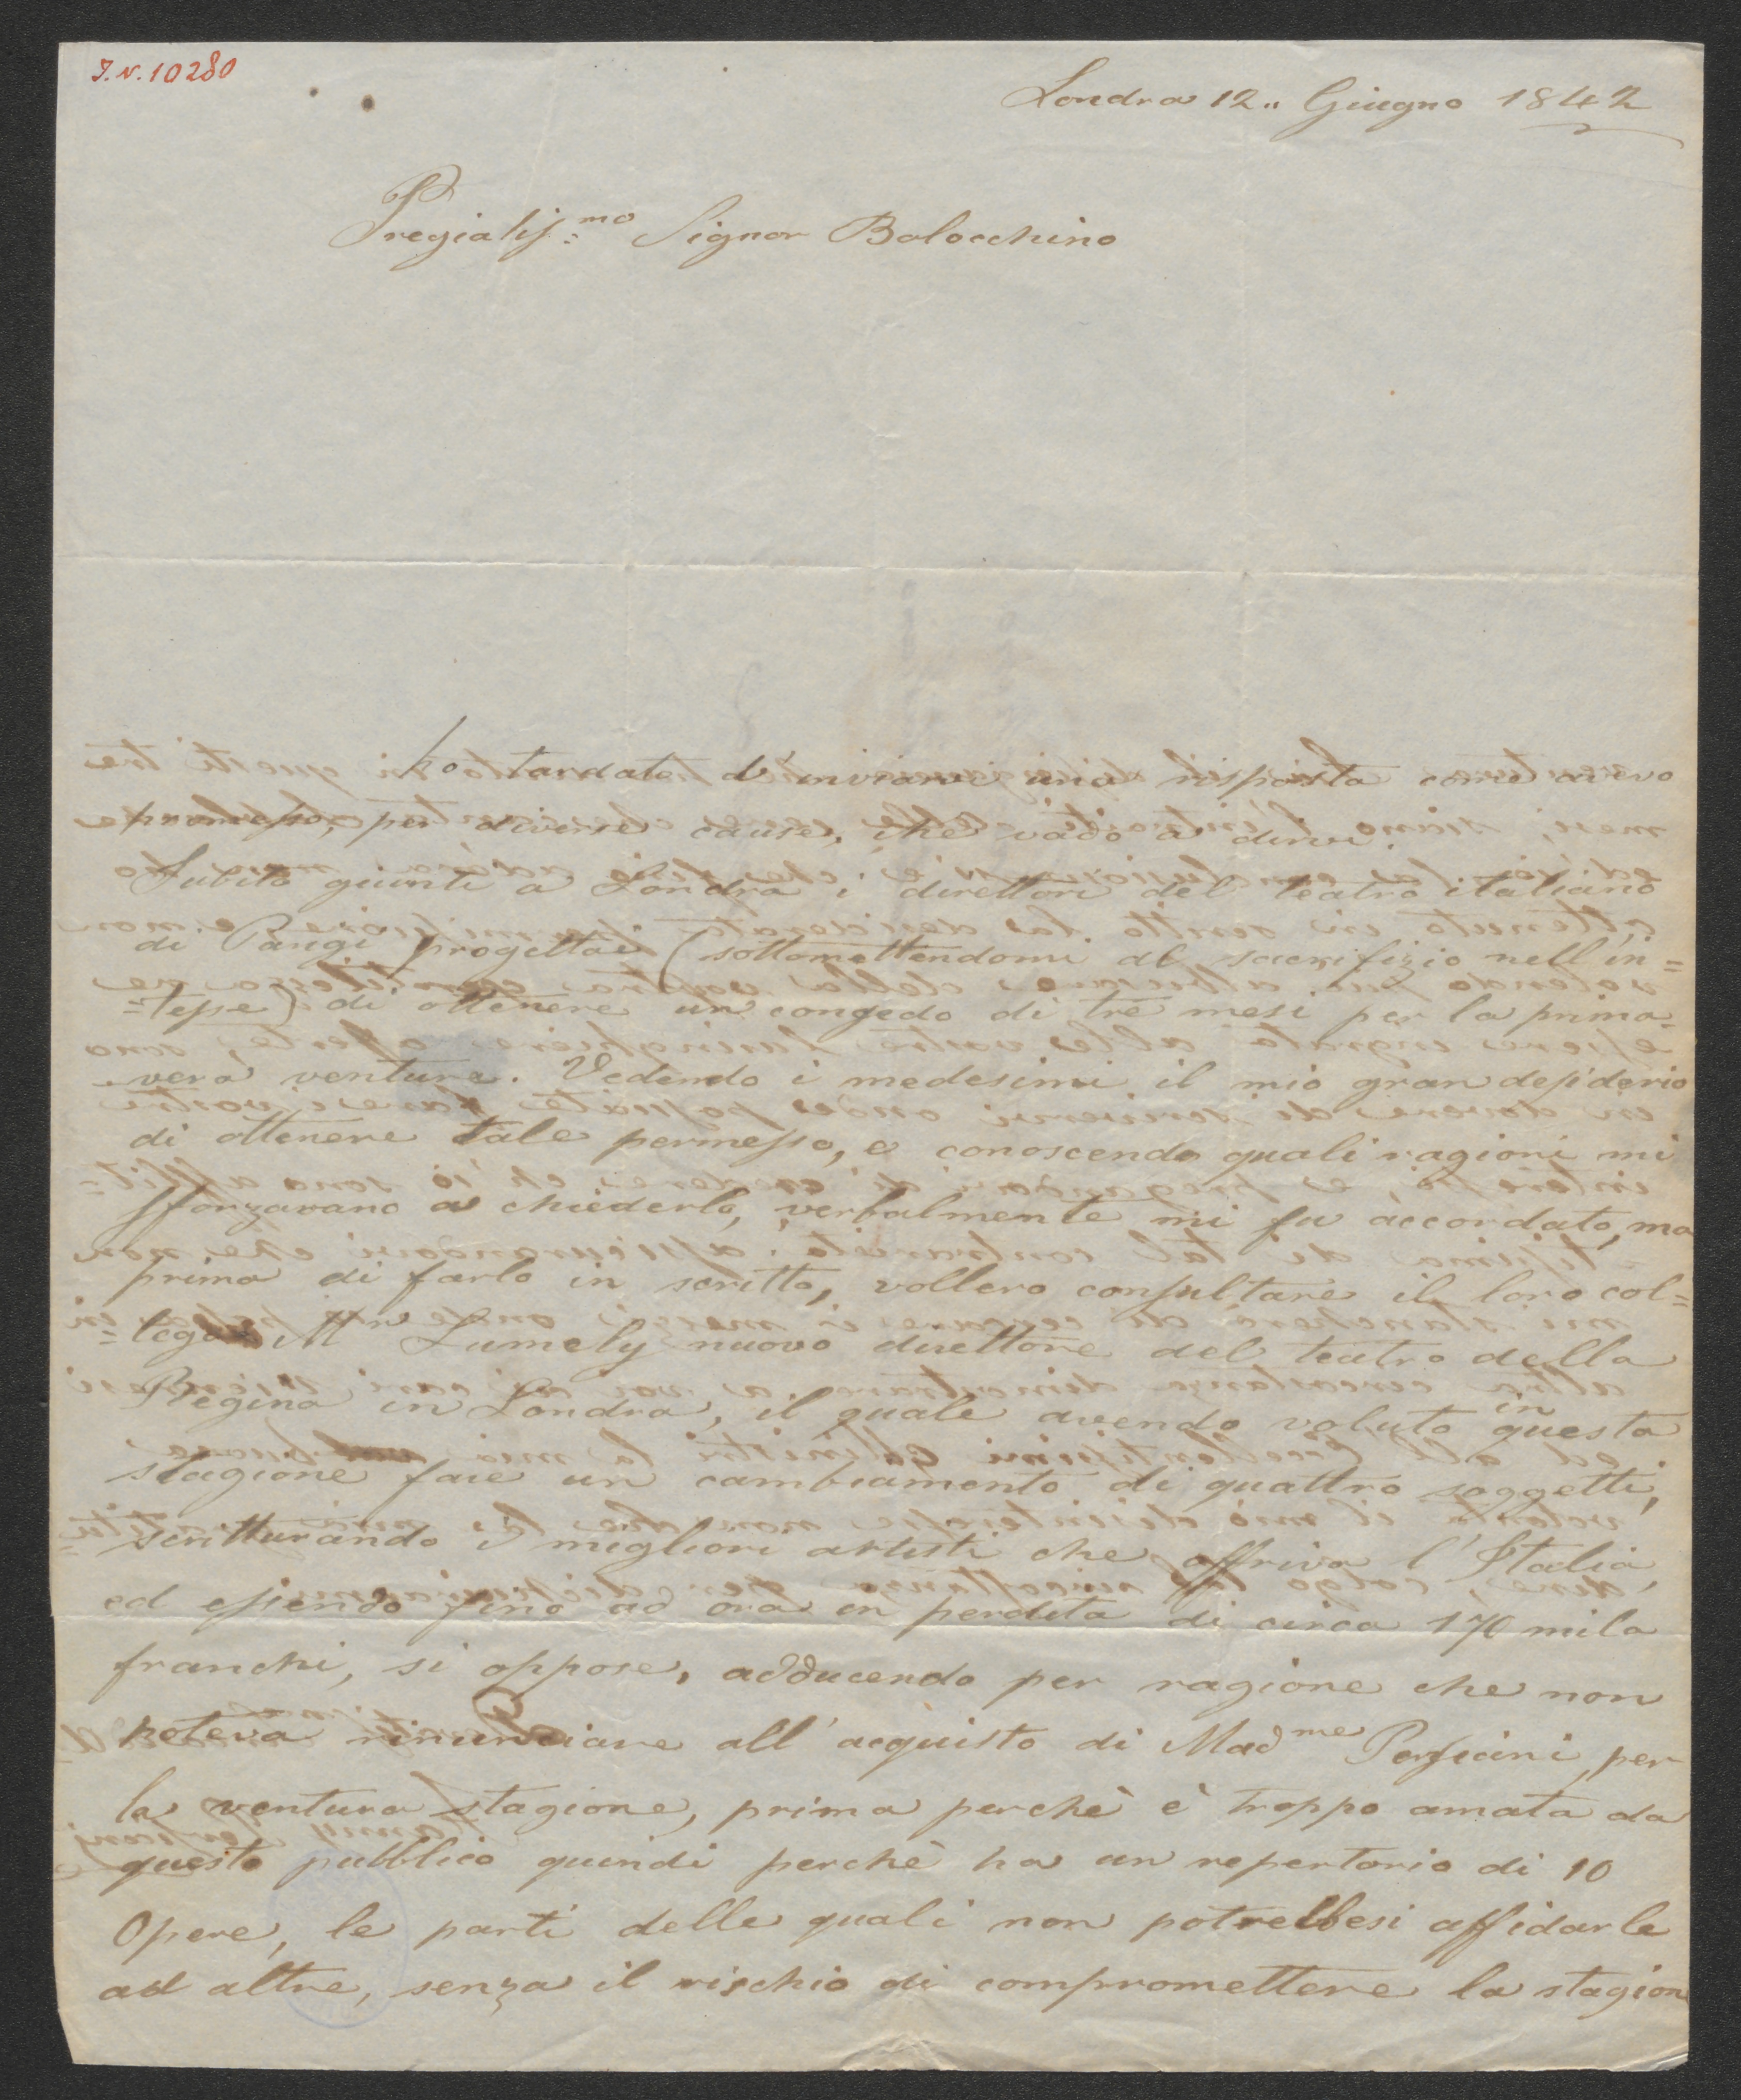 J.N. 10280
Londra 12.. Giugno 1842
Pregialiss:mo Signor Balocchino
ho tardato d'inviarvi una risposta come avevo
promesso, per diverse cause, che vado a dirvi.
Subito giunti a Londra i direttori del teatro italiano
di Parigi progettai (sottomettendomi al sacrifizio nell'in=
=tesse) di ottenere un congedo di tre mesi per la prima=
vera ventura. Vedendo i medesimi il mio gran desiderio
di ottenere tale permesso, e conoscendo quali ragioni mi
sforzavano a chiederlo, verbalmente mi fu accordato, ma
prima di farlo in scritto, vollero consultare il loro col=
=lega Mr Lumely nuovo direttore del teatro della
Regina in Londra, il quale avendo voluto in questa
stagione fare un cambiamento di quattro soggetti,
scritturando i migliori artisti che offriva l'Italia,
ed essendo fino ad ora in perdita di circa 170 mila
franchi, si oppose, adducendo per ragione che non
poteva rinunciare all'acquisto di Madme Persiani per
la ventura stagione, prima perchè è troppo amata da
questo pubblico quindi perchè ha un repertorio di 10
Opere, le parti delle quali non potrebbesi affidarle
ad altre, senza il rischio di compromettere la stagion